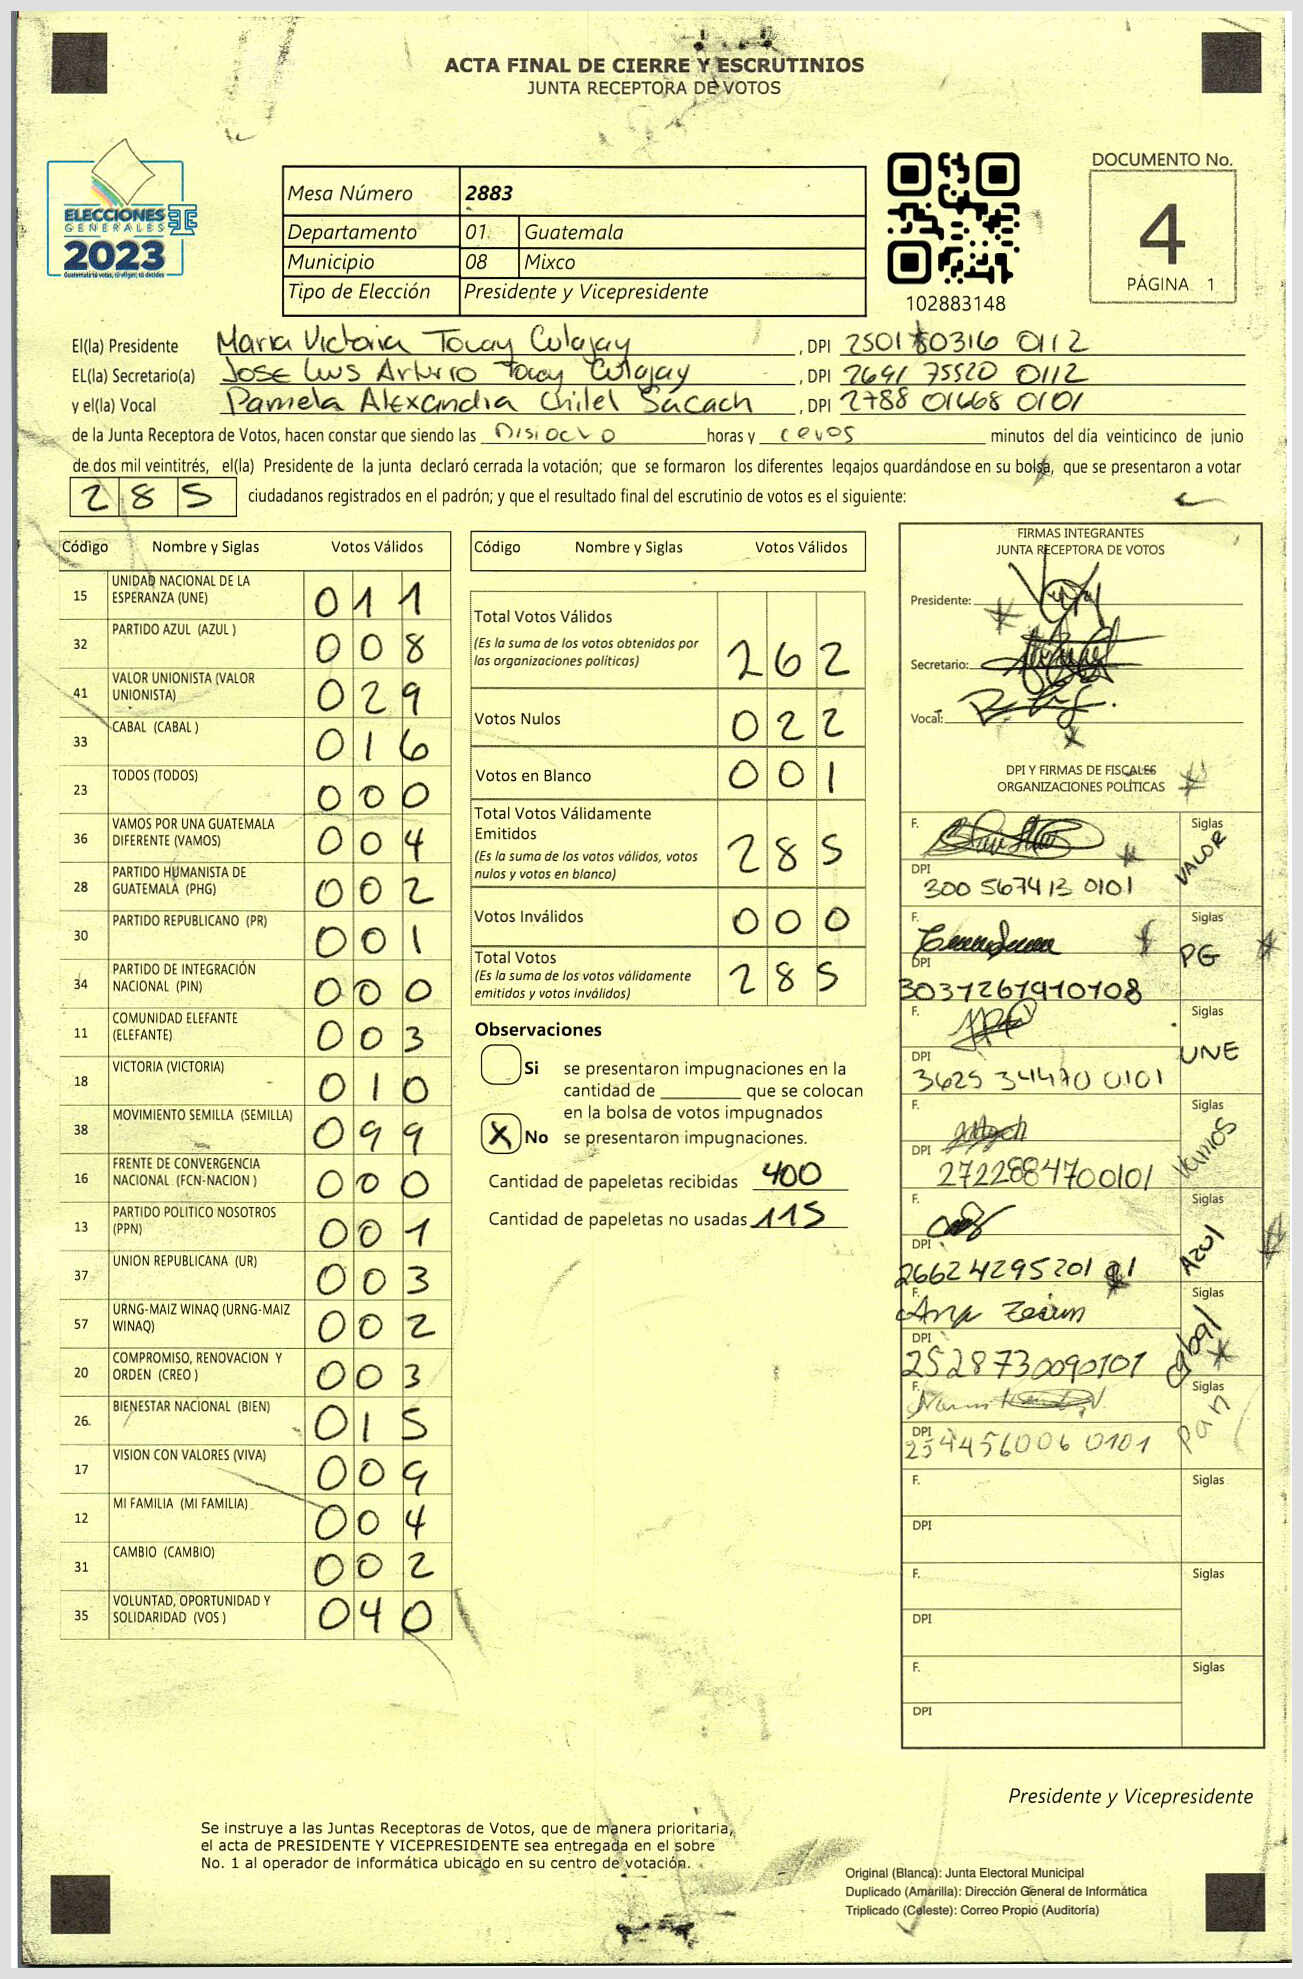 ACTA FINAL DE CIERRE Y ESCRUTINIOS
JUNTA RECEPTORA DE VOTOS
ELECCIONES
GENERALES
2023
Guatemala tú votas, tú eliges, tú decides
Mesa Número 2883
Departamento 01 Guatemala
Municipio 08 Mixco
Tipo de Elección Presidente y Vicepresidente
102883148
DOCUMENTO No.
4
PÁGINA 1
El(la) Presidente Maria Victoria Tocay Culajay, DPI 2501 80316 0112
EL(la) Secretario(a) Jose Luis Arturo Tocay Culajay, DPI 2691 75520 0112
y el(la) Vocal Pamela Alexandra Chilel Sacach, DPI 2788 01668 0101
de la Junta Receptora de Votos, hacen constar que siendo las Disiocho horas y ceros minutos del día veinticinco de junio
de dos mil veintitrés, el(la) Presidente de la junta declaró cerrada la votación; que se formaron los diferentes legajos guardándose en su bolsa, que se presentaron a votar
285 ciudadanos registrados en el padrón; y que el resultado final del escrutinio de votos es el siguiente:
Código Nombre y Siglas Votos Válidos
15 UNIDAD NACIONAL DE LA ESPERANZA (UNE) 011
32 PARTIDO AZUL (AZUL ) 008
41 VALOR UNIONISTA (VALOR UNIONISTA) 029
33 CABAL (CABAL ) 016
23 TODOS (TODOS) 000
36 VAMOS POR UNA GUATEMALA DIFERENTE (VAMOS) 004
28 PARTIDO HUMANISTA DE GUATEMALA (PHG) 002
30 PARTIDO REPUBLICANO (PR) 001
34 PARTIDO DE INTEGRACIÓN NACIONAL (PIN) 000
11 COMUNIDAD ELEFANTE (ELEFANTE) 003
18 VICTORIA (VICTORIA) 010
38 MOVIMIENTO SEMILLA (SEMILLA) 099
16 FRENTE DE CONVERGENCIA NACIONAL (FCN-NACION ) 000
13 PARTIDO POLITICO NOSOTROS (PPN) 001
37 UNION REPUBLICANA (UR) 003
57 URNG-MAIZ WINAQ (URNG-MAIZ WINAQ) 002
20 COMPROMISO, RENOVACION Y ORDEN (CREO ) 003
26. BIENESTAR NACIONAL (BIEN) 015
17 VISION CON VALORES (VIVA) 009
12 MI FAMILIA (MI FAMILIA) 004
31 CAMBIO (CAMBIO) 002
35 VOLUNTAD, OPORTUNIDAD Y SOLIDARIDAD (VOS ) 040
Código Nombre y Siglas Votos Válidos
Total Votos Válidos 262
(Es la suma de los votos obtenidos por
las organizaciones políticas)
Votos Nulos 022
Votos en Blanco 001
Total Votos Válidamente
Emitidos 285
(Es la suma de los votos válidos, votos
nulos y votos en blanco)
Votos Inválidos 000
Total Votos 285
(Es la suma de los votos válidamente
emitidos y votos inválidos)
Observaciones
Si se presentaron impugnaciones en la
cantidad de ________ que se colocan
en la bolsa de votos impugnados
X No se presentaron impugnaciones.
Cantidad de papeletas recibidas 400
Cantidad de papeletas no usadas 115
FIRMAS INTEGRANTES
JUNTA RECEPTORA DE VOTOS
Presidente:
Secretario:
Vocal:
DPI Y FIRMAS DE FISCALES
ORGANIZACIONES POLÍTICAS
F. Siglas VALOR
DPI 300 567413 0101
F. Siglas PG
DPI
F. Siglas UNE
DPI 3625 34470 0101
F. Siglas Vamos
DPI 2722884700101
F. Siglas Azul
DPI
F. Siglas Cabal
DPI 2528730090101
F. Siglas Pan
DPI 2544560060101
F. Siglas
DPI
F. Siglas
DPI
F. Siglas
DPI
Presidente y Vicepresidente
Se instruye a las Juntas Receptoras de Votos, que de manera prioritaria,
el acta de PRESIDENTE Y VICEPRESIDENTE sea entregada en el sobre
No. 1 al operador de informática ubicado en su centro de votación.
Original (Blanca): Junta Electoral Municipal
Duplicado (Amarilla): Dirección General de Informática
Triplicado (Celeste): Correo Propio (Auditoría)